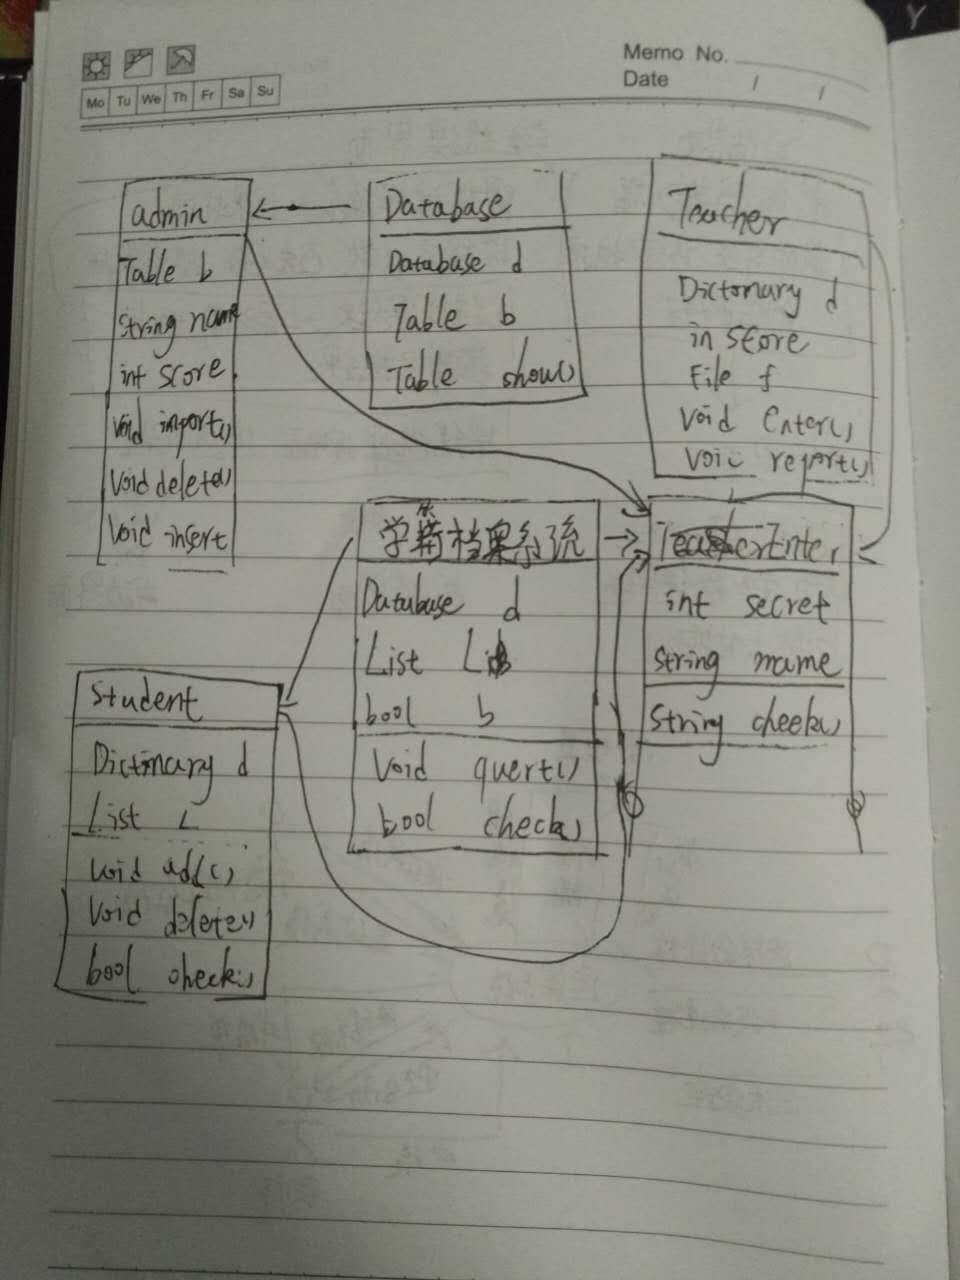 Memo No.
Date / /
Mo Tu We Th Fr Sa Su
admin
Table b
String name
int score
Void import()
Void delete()
Void insert
Database
Database d
Table b
Table show()
Teacher
Dictonary d
in score
File f
Void Enter()
Void report()
学籍档案系统
Database d
List
bool b
Void quert()
bool check()
int secret
String name
String check()
Student
Dictionary d
List L
Void add()
Void delete()
bool check()
Y